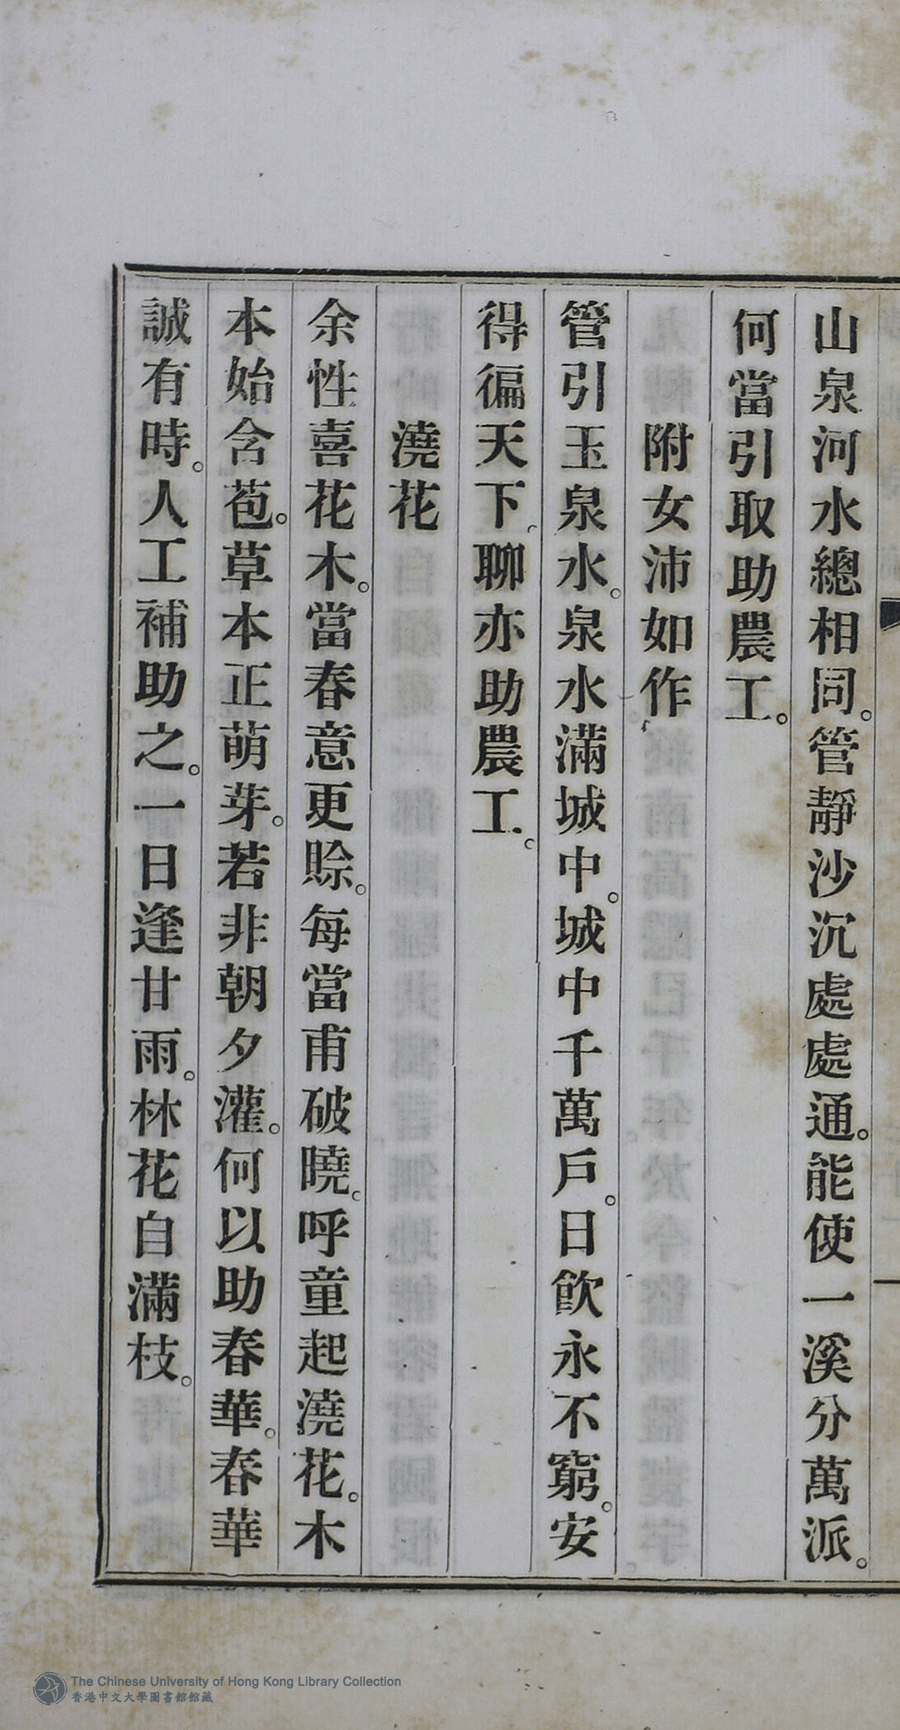 山泉河水總相同。管靜沙沉處處通。能使一溪分萬派。
何當引取助農工。
附女沛如作
管引玉泉水。泉水滿城中。城中千萬戶。日飮永不窮。安
得徧天下。聊亦助農工。
澆花
余性喜花木。當春意更賒。每當甫破曉。呼童起澆花。木
本始含苞。草本正萌芽。若非朝夕灌。何以助春華。春華
誠有時。人工補助之。一日逢甘雨。林花自滿枝。
The Chinese University of Hong Kong Library Collection
香港中文大學圖書館館藏